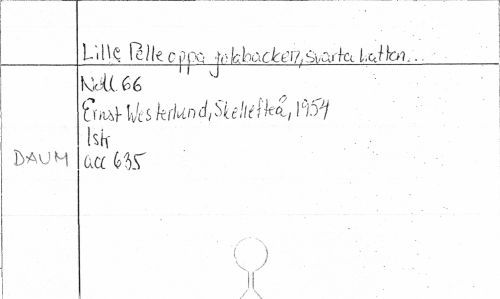 Lille Pelle oppa golabacken, svarta hatten...
Noll. 66
Ernst Westerlund, Skellefteå, 1954
1str
DAUM acc 635